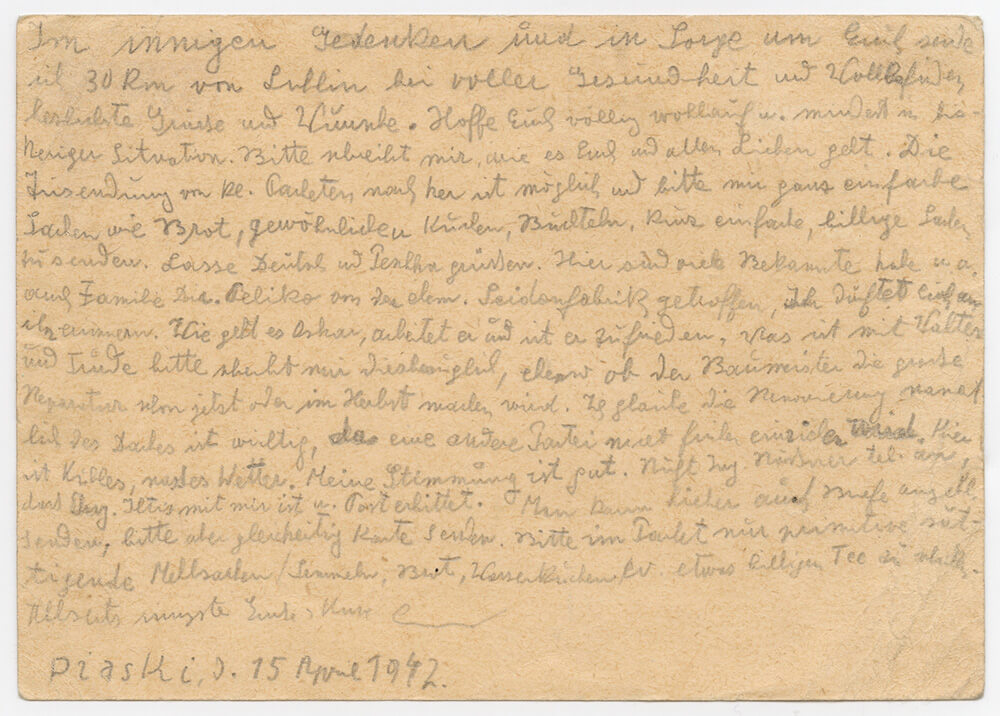 Im innigen Gedenken und in Sorge um Euch sende
ich 30 Km von Lublin bei voller Gesundheit und Wohlbefinden
herzlichste Grüsse und Wünsche. Hoffe Euch völlig wohlauf u. mindest in bis-
heriger Situation. Bitte schreibt mir, wie es Euch und allen Lieben geht. Die
Zusendung von Paketen nach her ist möglich und bitte nur ganz einfache
Sachen wie Brot, gewöhnlichen Kuchen, Buchteln, kurz einfache, billige Sachen
zu senden. Lasse Deutsch und grüssen. Hier sind viele Bekannte habe u. a.
auch Familie Dir. Peliko von der ehem. Seidenfabrik getroffen, Ihr dürftet Euch an
ihn erinnern. Wie geht es Oskar, arbeitet er und ist er zufrieden, was ist mit Walter
und Trude bitte schreibt mir diesbezüglich, ebenso ob der Baumeister die grosse
Reparatur schon jetzt oder im Herbst machen wird. Ich glaube die Renovierung nament-
lich des Daches ist wichtig, da eine andere Partei nicht einziehen wird. Hier
ist kühles, nasses Wetter. Meine Stimmung ist gut. Ruft Ing. tel. an,
dass Ing. mit mir ist u. Post erbittet. Man kann hieher auch Briefe
senden, bitte aber gleichzeitig Karte senden. Bitte im Paket nur primitive sät-
tigende Mehlsachen / Semmeln, Brot, etwas billigen Tee zu schicken.
Allseits innigste Küsse
Piaski, d. 15 April 1942.